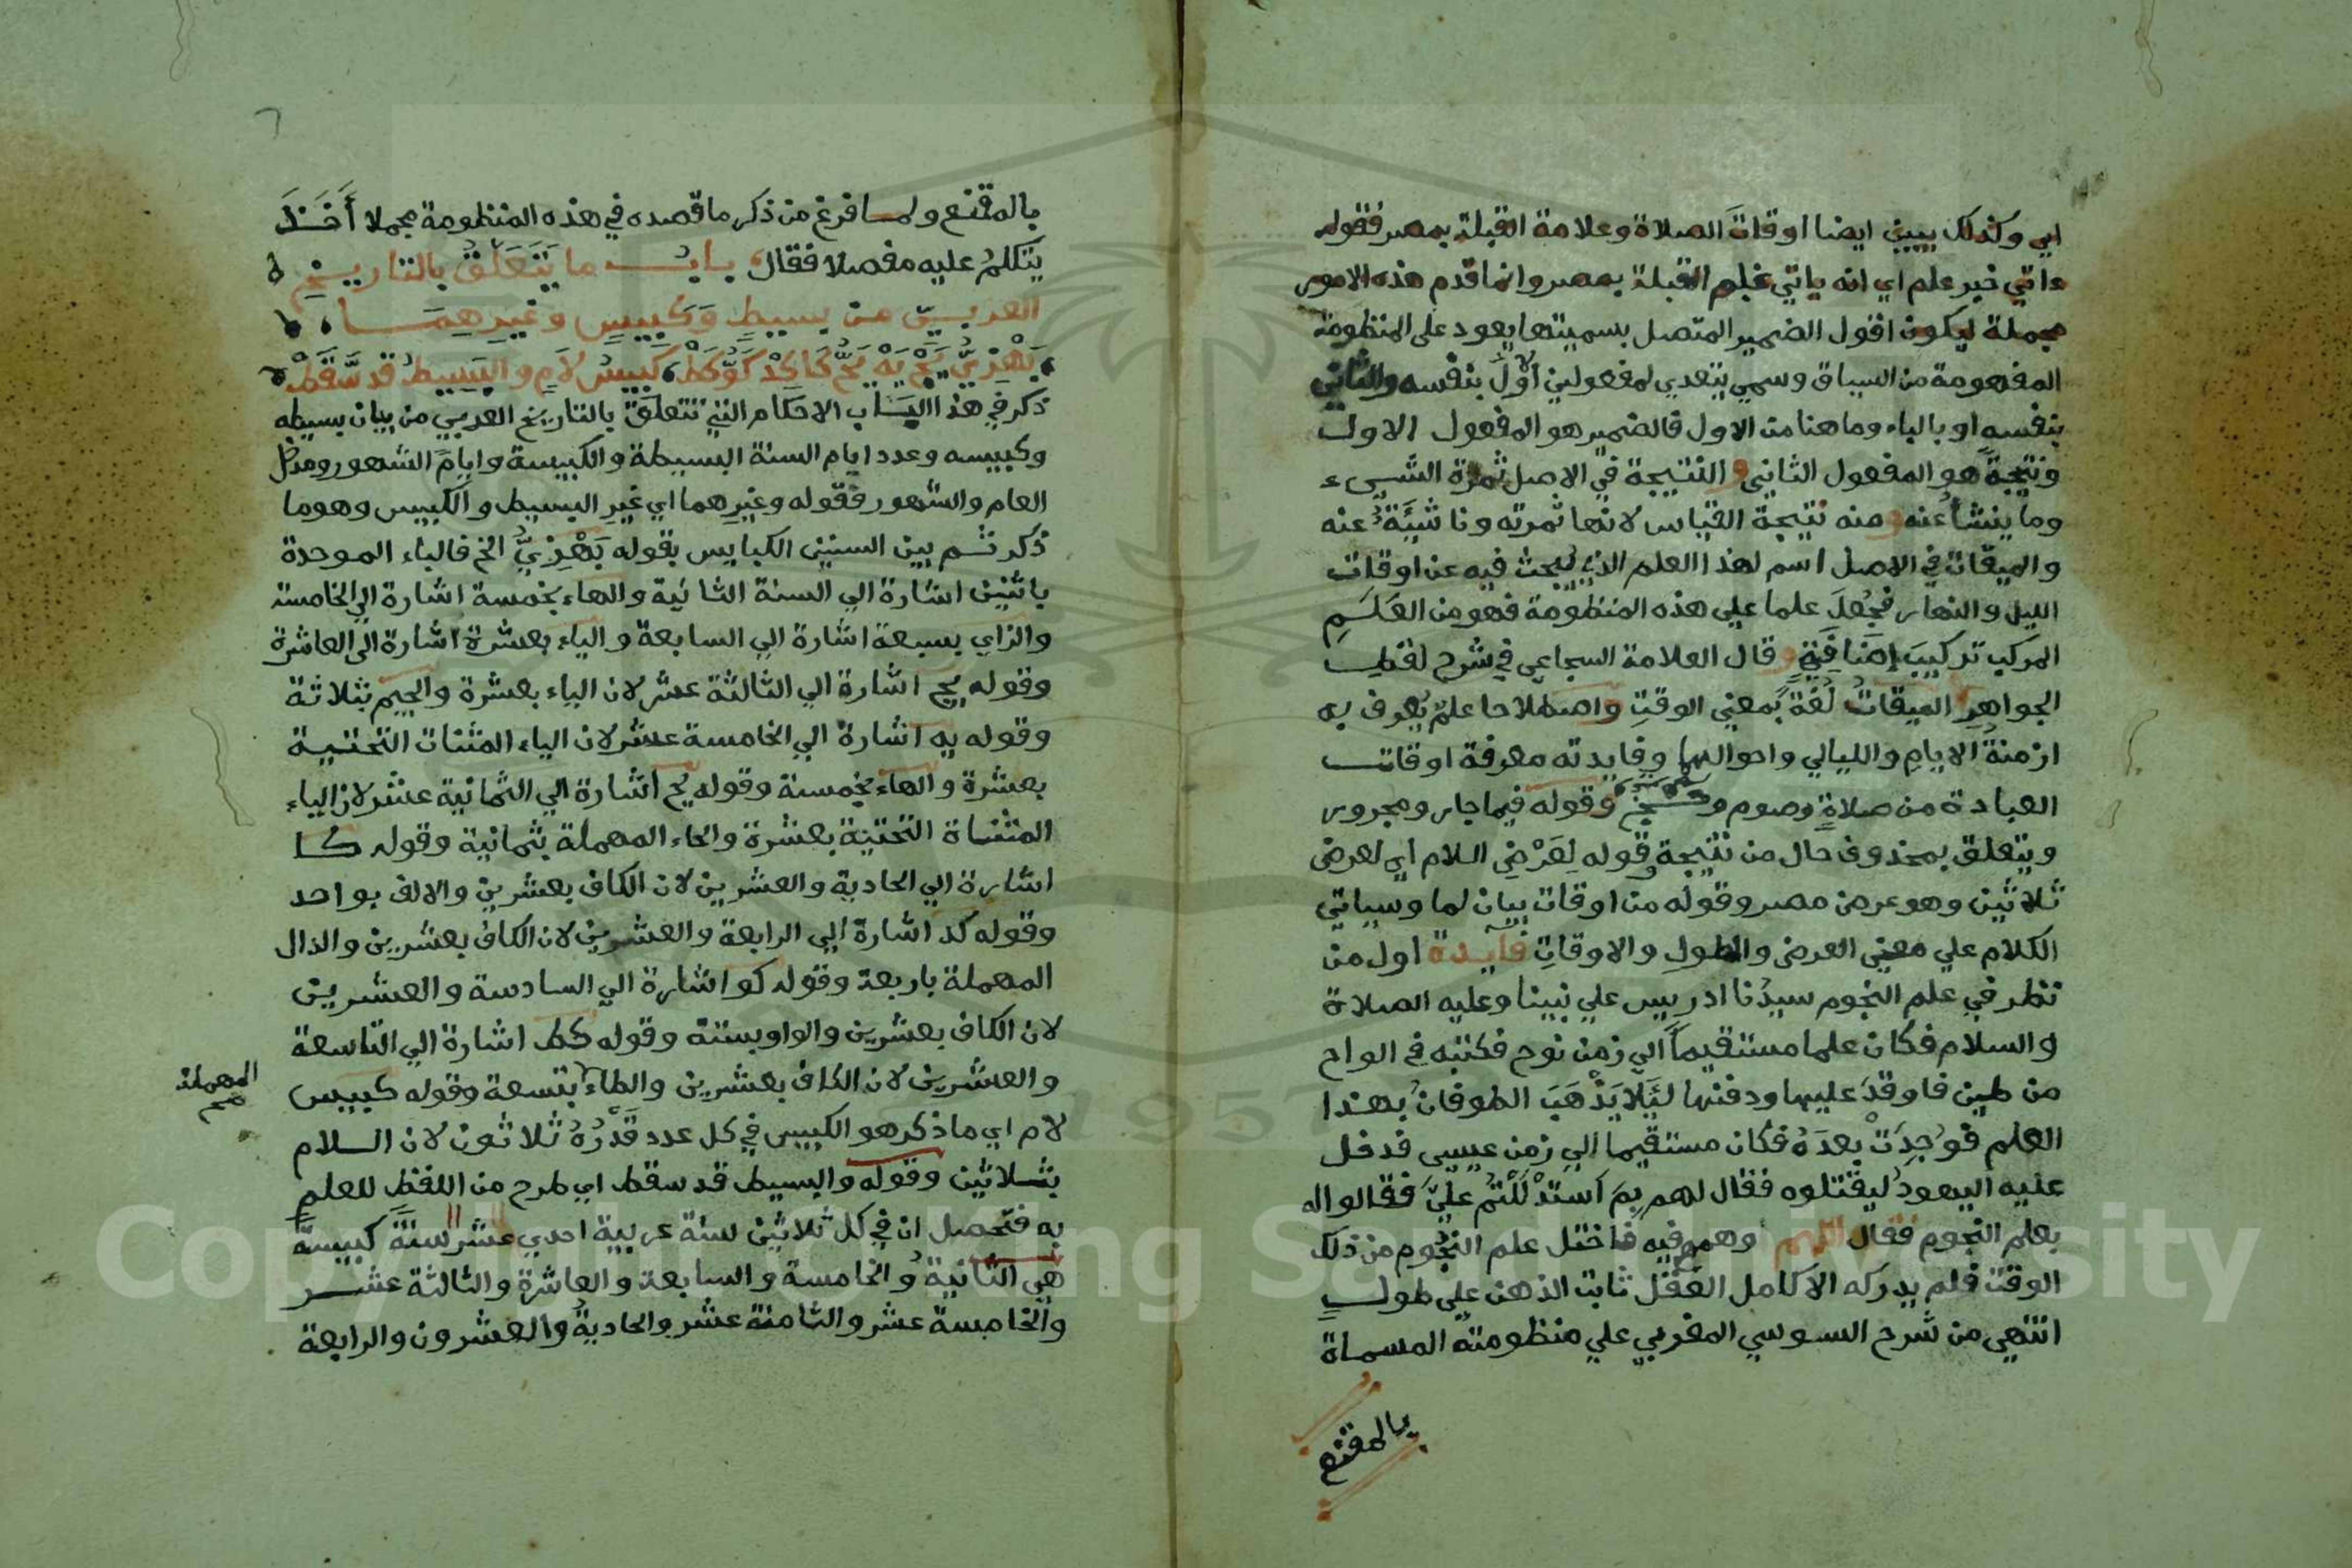 اي وكذلك يبين ايضا اوقاتَ الصلاة وعلامة القبلة بمصر فقوله
ءاتي خبر علم اي انه ياتي علم القبلة بمصر وانما قدم هذه الامور
مجملة ليكون اقول الضمير المتصل بسميتها يعود على المنظومة
المفهومة من السياق وسمي يتعدي لمفعولين الاولُ بنفسه والثاني
بنفسه او بالباء وما هنا من الاول فالضمير هو المفعول الاول
ونتيجة هو المفعول الثاني والنتيجة في الاصل ثمرة الشيىء
وما ينشأ عنه ومنه نتيجة القياس لانها ثمرته وناشئَةٌ عنه
والميقات في الاصل اسم لهذا العلم الذي يبحث فيه عن اوقات
الليل والنهار فجُعلَ علما علي هذه المنظومة فهو من العَلَمِ
المركب تركيبَ إضَافِيّ وقال العلامة السجاعي في شرح لقط
الجواهرِ الميقاتُ لُغةً بمعني الوقتِ واصطلاحا علمٌ يُعرف به
ازمنةُ الايامِ والليالي واحوالها وفايدته معرفة اوقات
العبادة من صلاةٍ وصوم وحج وقوله فيما جار ومجرور
ويتعلق بمحذوف حال من نتيجة وقوله لِعَرْضِ اللام اي لعرض
ثلاثين وهو عرض مصر وقوله من اوقات بيان لما وسياتي
الكلام علي معني العرض والطولِ والاوقاتِ فايدة اول من
نظر في علم النجوم سيدُنا ادريس علي نبينا وعليه الصلاة
والسلام فكان علما مستقيماً الي زمن نوح فكتبه في الواح
من طين فاوقدَ عليها ودفنها لئَلا يَذْهَبَ الطوفانُ بهذا
العلم فوُجِدَتْ بعدَهُ فكان مستقيما الي زمن عيسى فدخل
عليه اليهودُ ليقتلوه فقال لهم بِمَ استدْلَلْتُم عليَّ فقالوا له
بعلم النجوم فقال اللهم وهمهم فيه فاختل علم النجُوم من ذلك
الوقت فلم يدركه الا كامل العقل ثابت الذهن علي طولٍ
انتهي من شرح السوسي المغربي علي منظومته المسماة
بالمقنع
بالمقنع ولما فرغ من ذكر ما قصده في هذه المنظومة مجملا أَخَذَ
يتكلمُ عليه مفصلا فقال بابُ ما يَتَعَلَّقُ بالتاريخِ
العربيّ من بسيطٍ وَكَبِيسٍ وغيرِهِمَا
بَهْزِيٌّ يَجْ يَهْ يَحُّ كَا كَدْ كَوٌّ كَطْ كَبِيسُ لاَمٍ والبَسِيطُ قد سَّقَطْ
ذكر في هذا الباب الاحكام التي تتعلق بالتاريخ العربي من بيان بسيطه
وكبيسه وعدد ايام السنة البسيطة والكبيسة وايامَ الشهور ومدخل
العام والشهور فقوله وغيرِهما اي غير البسيط والكبيس وهو ما
ذكر ثم بين السنين الكبايس بقوله بَهْزِيٌّ الخ فالباء الموحدة
باثنين اشارة الي السنة الثانية والهاء بخمسة اشارة الي الخامسة
والزاي بسبعة اشارة الي السابعة والياء بعشرة اشارة الى العاشرة
وقوله يج اشارة الي الثالثة عشر لان الياء بعشرة والجيم بثلاثة
وقوله يه اشارة الي الخامسة عشر لان الياء المثنات التحتية
بعشرة والهاء بخمسة وقوله يح اشارة الي الثمانية عشر لان الياء
المثناة التحتية بعشرة والحاء المهملة بثمانية وقوله كا
اشارة الي الحادية والعشرين لان الكاف بعشرين والالف بواحد
وقوله كد اشارة الي الرابعة والعشرين لان الكاف بعشرين والدال
المهملة باربعة وقوله كو اشارة الي السادسة والعشرين
لان الكاف بعشرين والواو بستة وقوله كط اشارة الي التاسعة
والعشرين لان الكاف بعشرين والطاء بتسعة وقوله كبيس
المهملة
صح
لام اي ما ذكر هو الكبيس في كل عدد قَدْرُهُ ثلاثون لان اللام
بثلاثين وقوله والبسيط قد سقط اي طرح من اللفظ للعلم
به فتحصل ان في كل ثلاثين سنة عربية احدي عشر سنة كبيسة
هي الثانية والخامسة والسابعة والعاشرة والثالثة عشر
والخامسة عشر والثامنة عشر والحادية والعشرون والرابعة
Copyright © King Saud University
1957